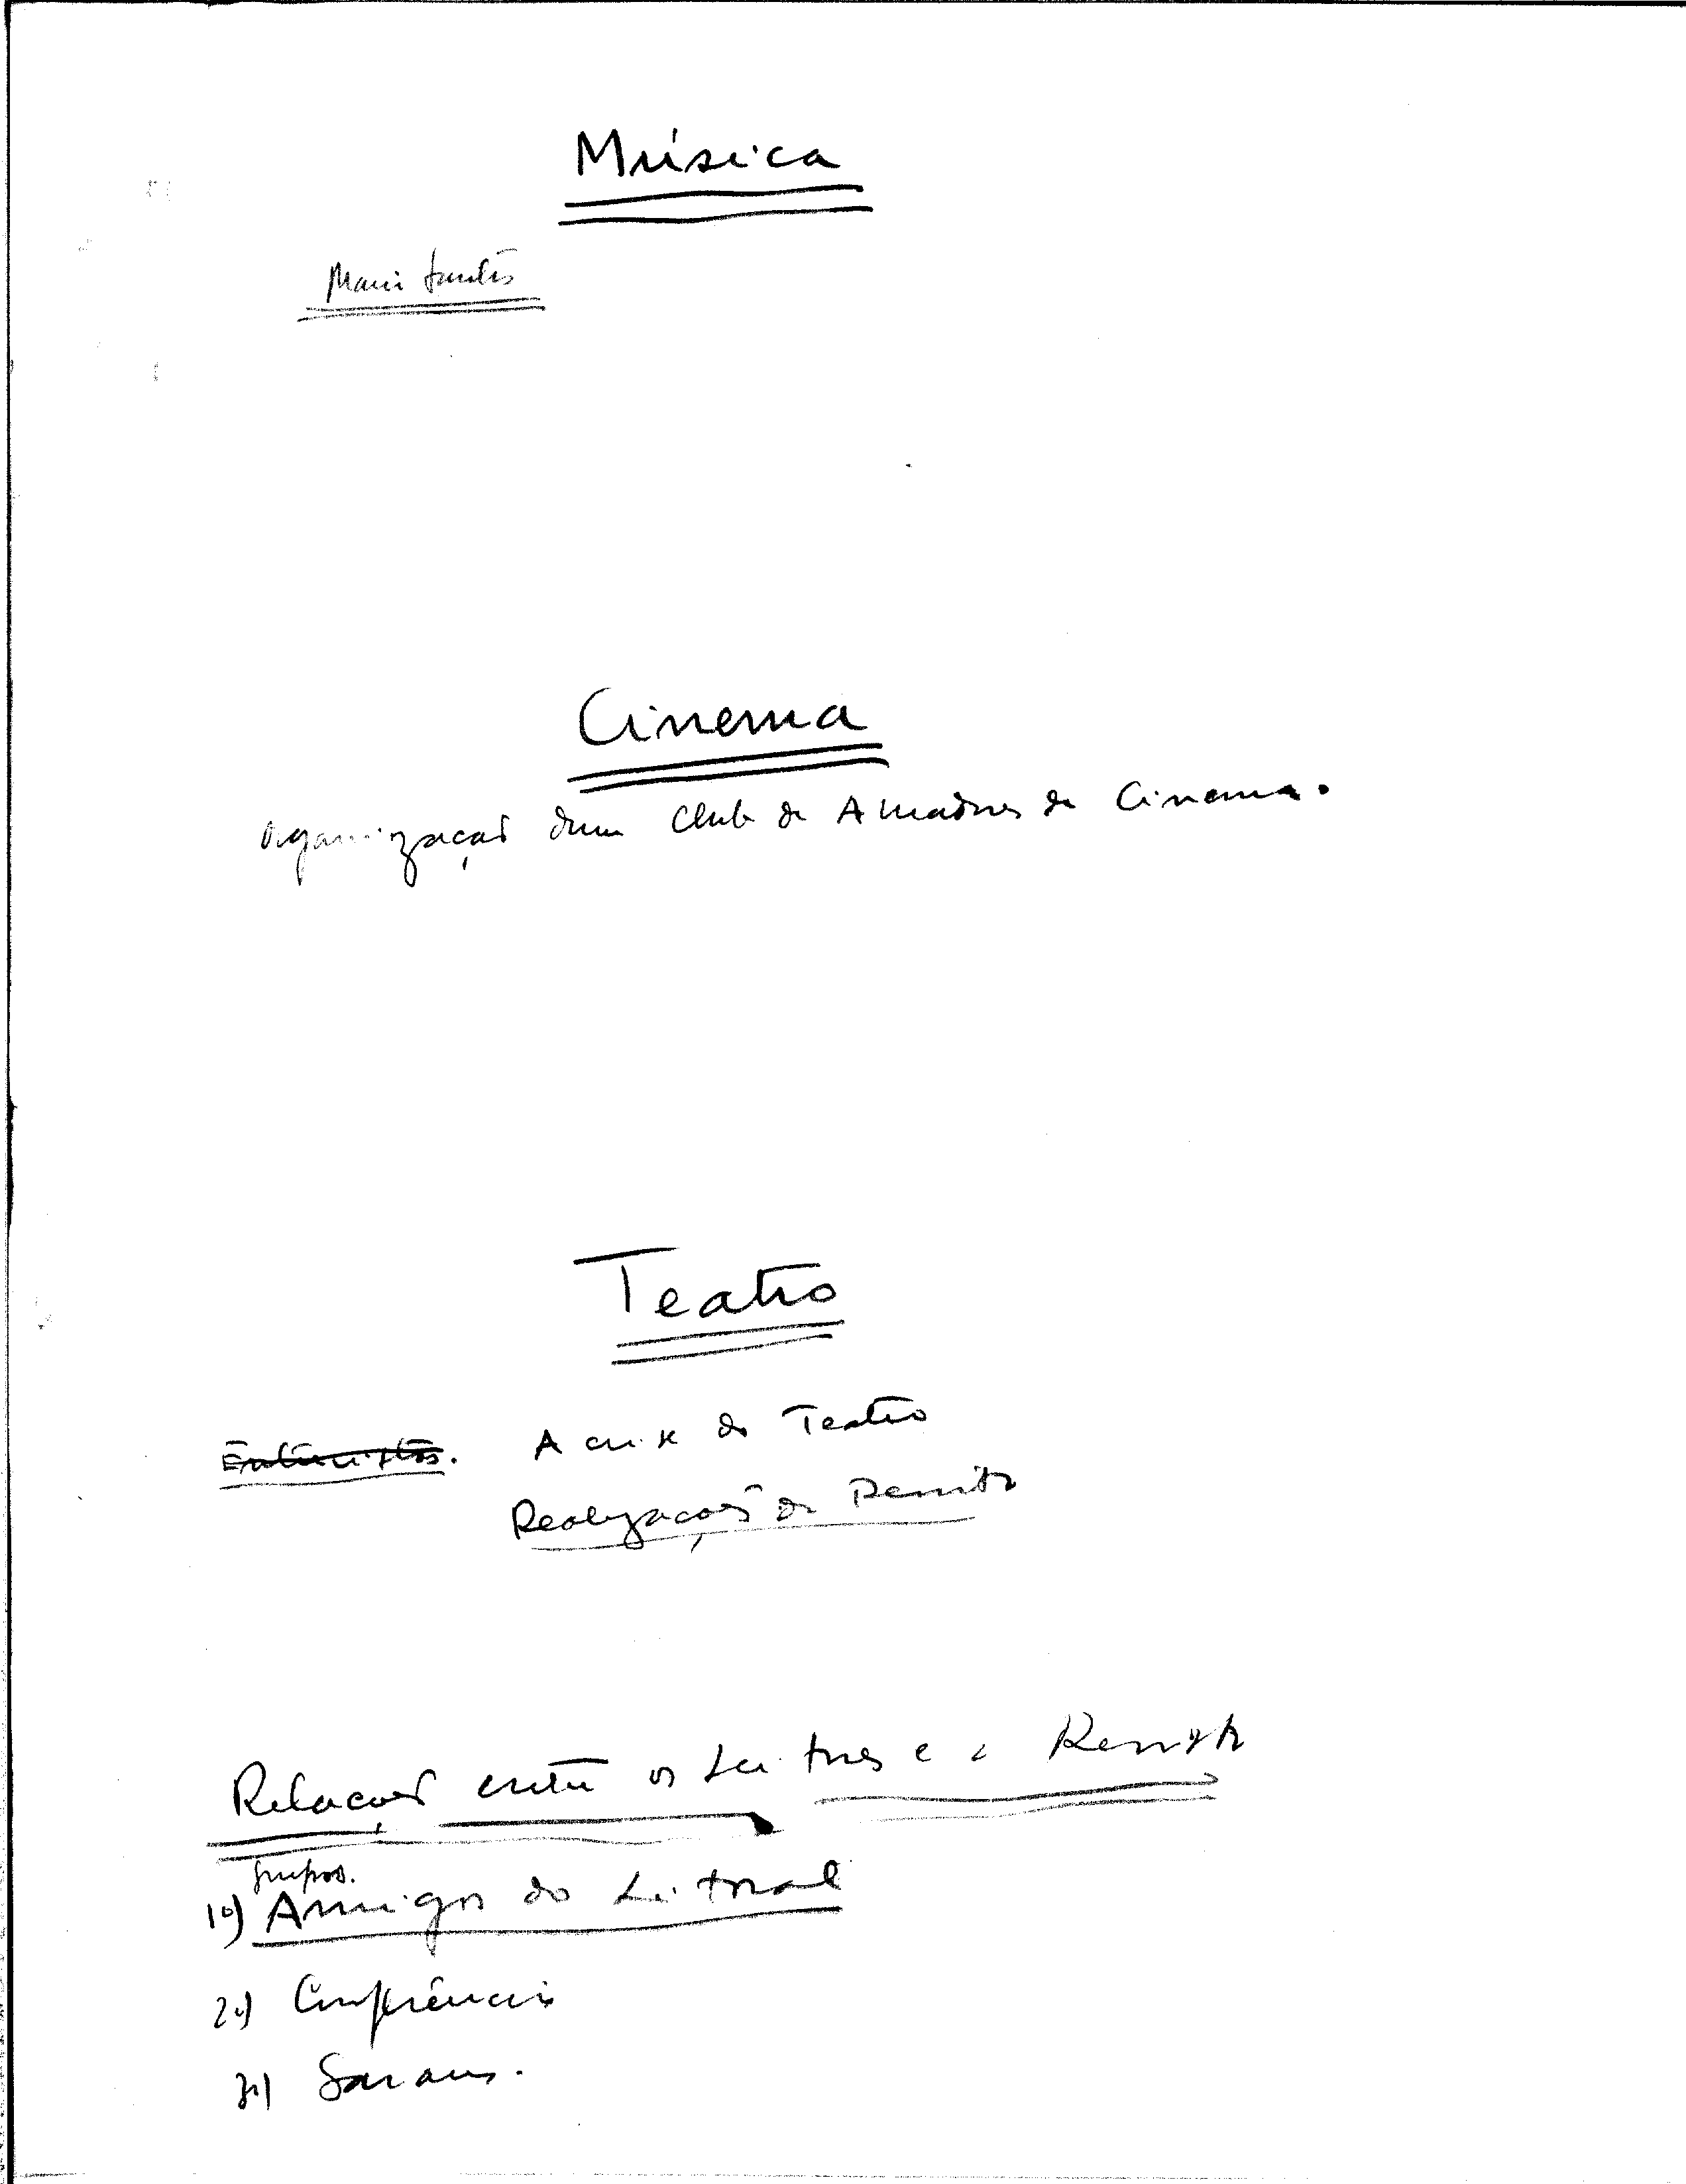 Música
Cinema
Organização dum Club de Amadores de Cinema.
Teatro
A crise do Teatro
Realizações da Revista
Relações entre os Leitores e a Revista
Grupos.
1º) Amigos do Litoral
2º) Conferências
3º) Saraus.